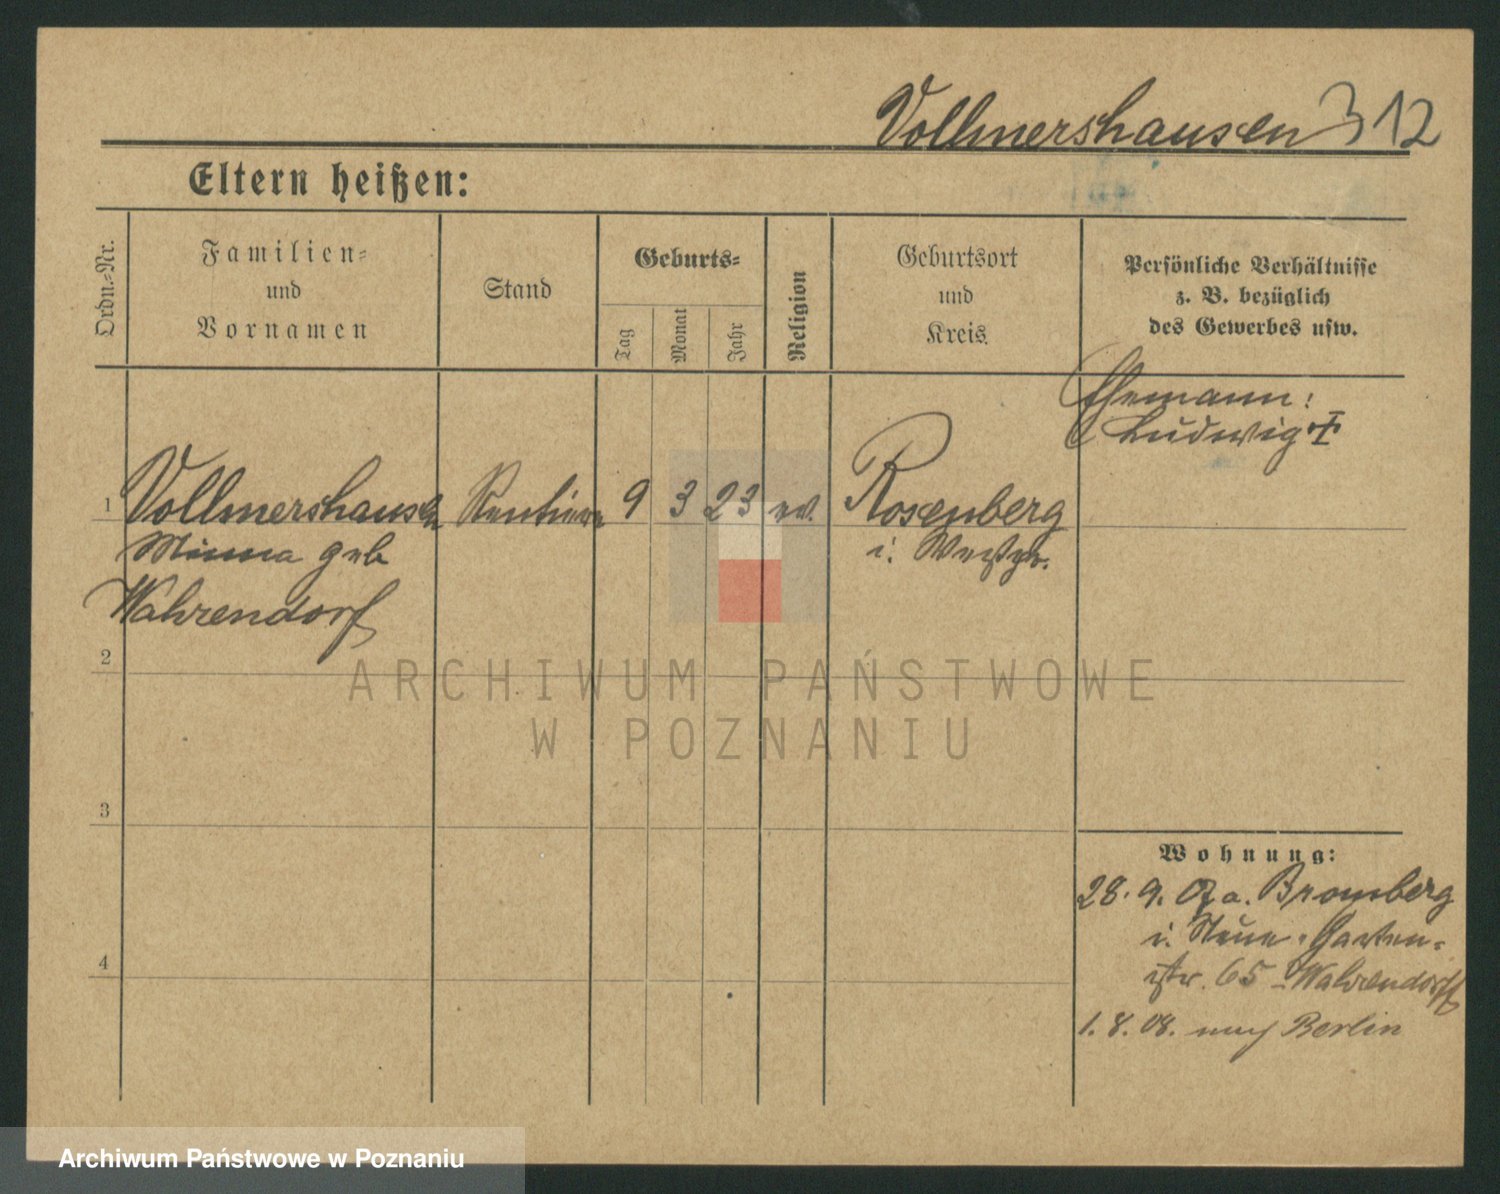 Vollmershausen 312
Eltern heißen:
Ordn.-Nr.
Familien-
und
Vornamen
Stand
Geburts-
Tag
Monat
Jahr
Religion
Geburtsort
und
Kreis.
Persönliche Verhältnisse
z. B. bezüglich
des Gewerbes usw.
Ehemann:
Ludwig †
1 Vollmershausen Rentiere 9 3 23 ev. Rosenberg
Minna geb i. Westpr.
Wahrendorf
2
ARCHIWUM PAŃSTWOWE
W POZNANIU
3
Wohnung:
28. 9. 07 a. Bromberg
i. Neue-Garten-
str. 65 - Wahrendorf
4
1. 8. 08. nach Berlin
Archiwum Państwowe w Poznaniu